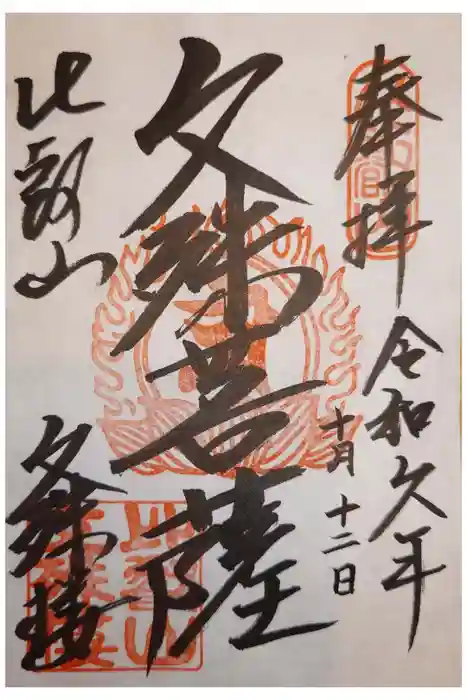 奉拝
令和久年
十月十二日
文殊菩薩
比叡山
文殊楼